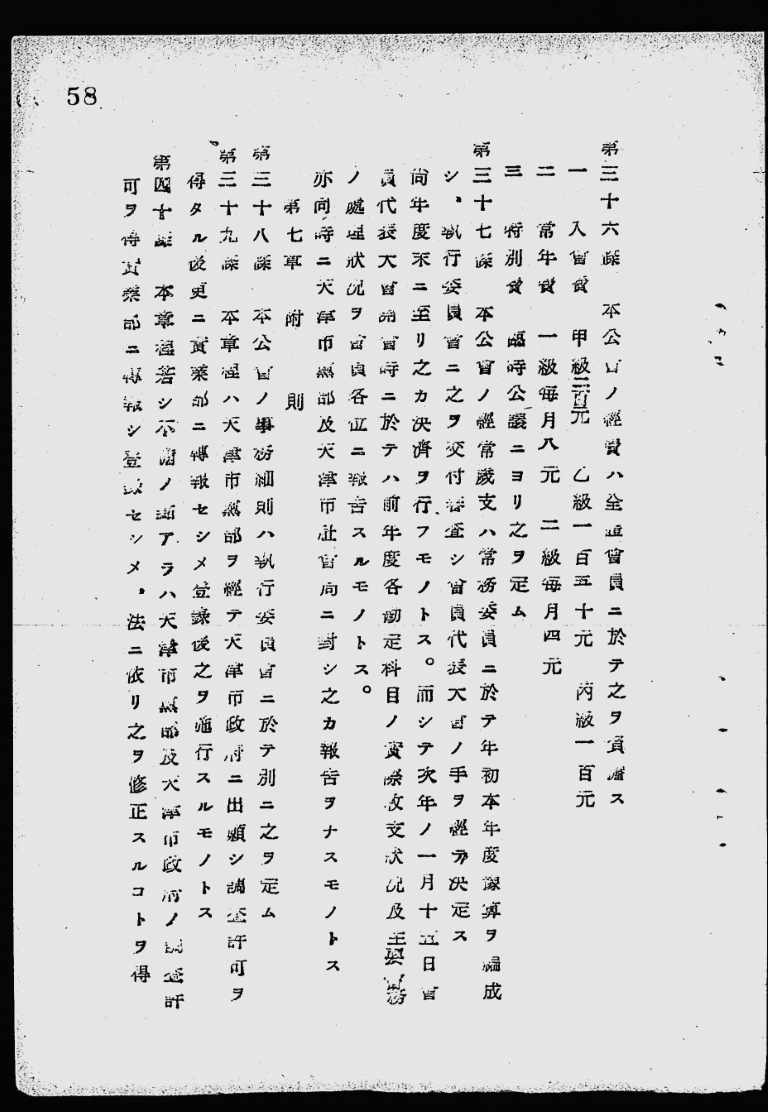 58
第三十六條 本公會ノ經費ハ全體會員ニ於テ之ヲ負擔ス
一 入會費 甲級二百元 乙級一百五十元 丙級一百元
二 常年費 一級每月八元 二級每月四元
三 特別費 臨時公議ニヨリ之ヲ定ム
第三十七條 本公會ノ經常歲支ハ常務委員ニ於テ年初本年度豫算ヲ編成
シ、執行委員會ニ之ヲ交付審查シ會員代表大會ノ手ヲ經テ決定ス
尙年度末ニ至リ之カ決濟ヲ行フモノトス。而シテ次年ノ一月十五日會
員代表大會開會時ニ於テハ前年度各勘定科目ノ實際收支狀況及主要會務
ノ處理狀況ヲ會員各位ニ報告スルモノトス。
亦同時ニ天津市黨部及天津市社會局ニ對シ之カ報告ヲナスモノトス
第七章 附則
第三十八條 本公會ノ事務細則ハ執行委員會ニ於テ別ニ之ヲ定ム
第三十九條 本章程ハ天津市黨部ヲ經テ天津市政府ニ出願シ調查許可ヲ
得タル後更ニ實業部ニ轉報セシメ登錄後之ヲ施行スルモノトス
第四十條 本章程若シ不備ノ點アラハ天津市黨部及天津市政府ノ調查許
可ヲ得實業部ニ轉報シ登錄セシメ、法ニ依リ之ヲ修正スルコトヲ得